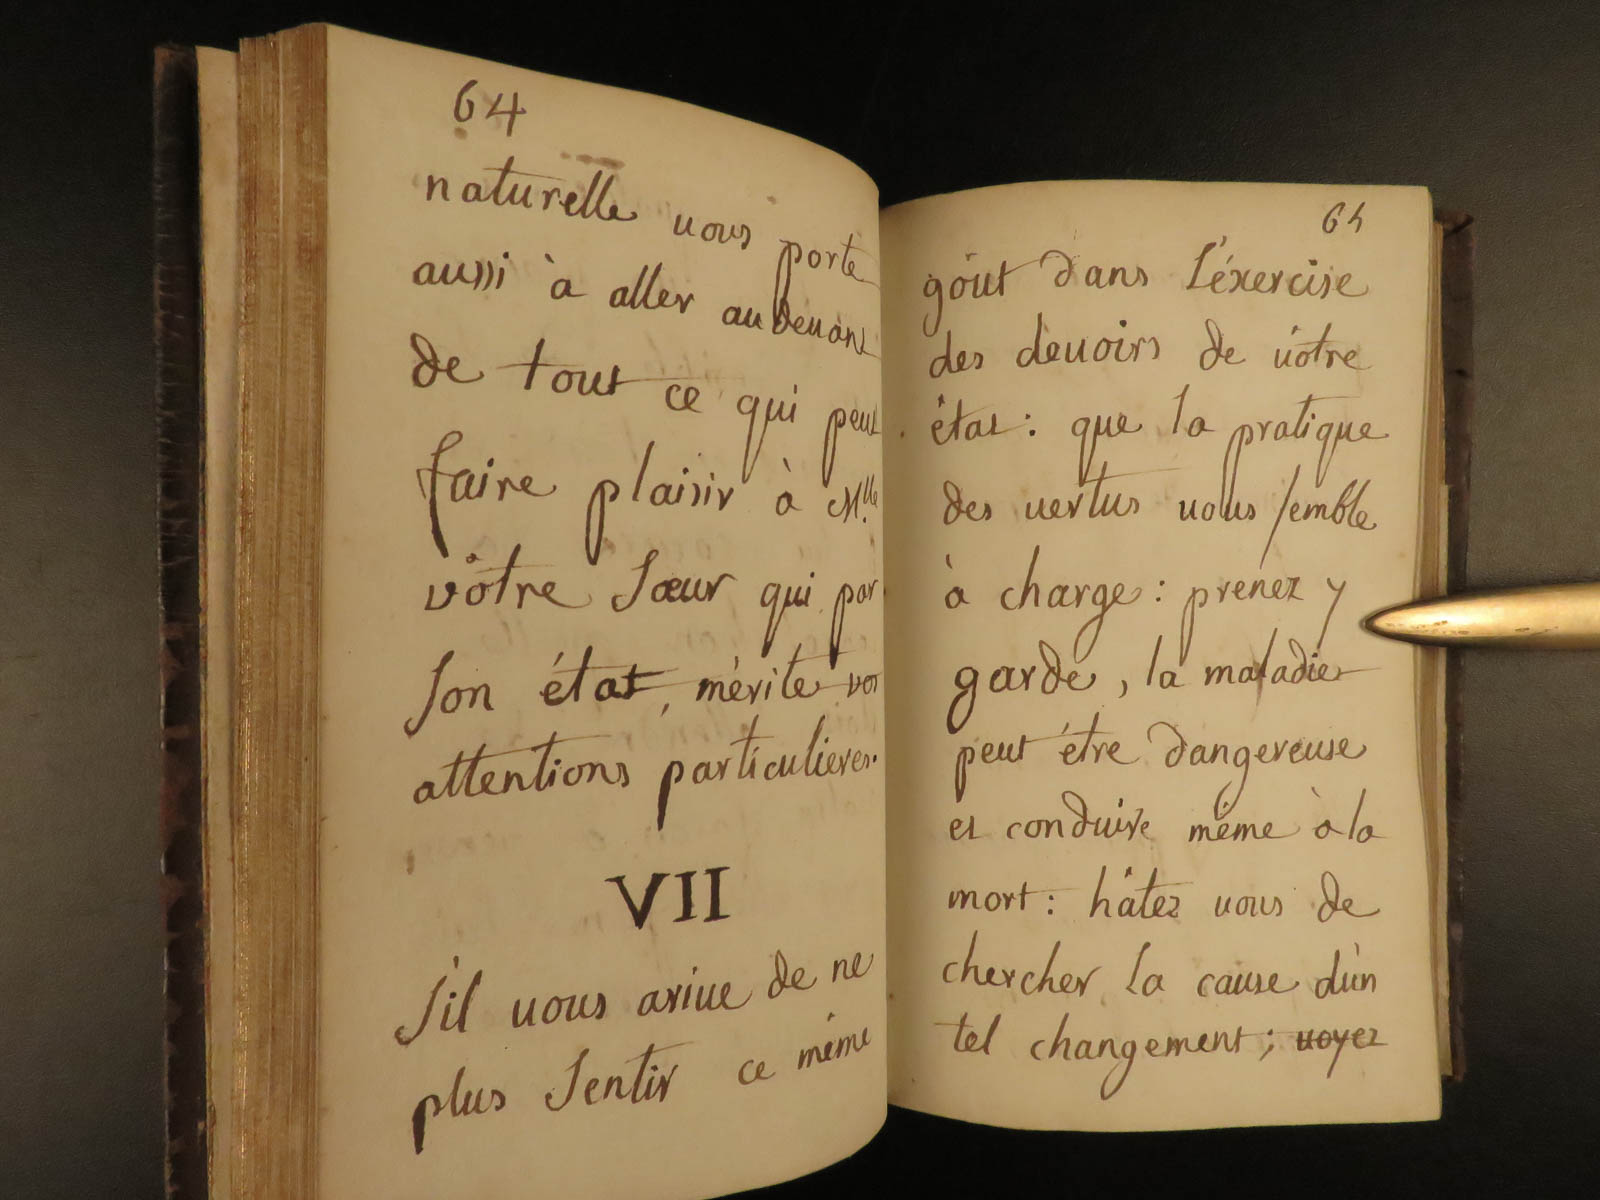 64
naturelle uous porte
aussi à aller audeuant
de tout ce qui peut
faire plaisir à Mlle
vôtre Sœur qui par
Son état, mérite vos
attentions particulieres.
VII
S'il uous ariue de ne
plus Sentir ce même
65
goût dans l'éxercise
des deuoirs de uôtre
êtat : que la pratique
des uertus uous semble
à charge : prenez y
garde, la maladie
peut être dangereuse
et conduire même à la
mort : hâtez uous de
chercher la cause d'un
tel changement ; uoyez